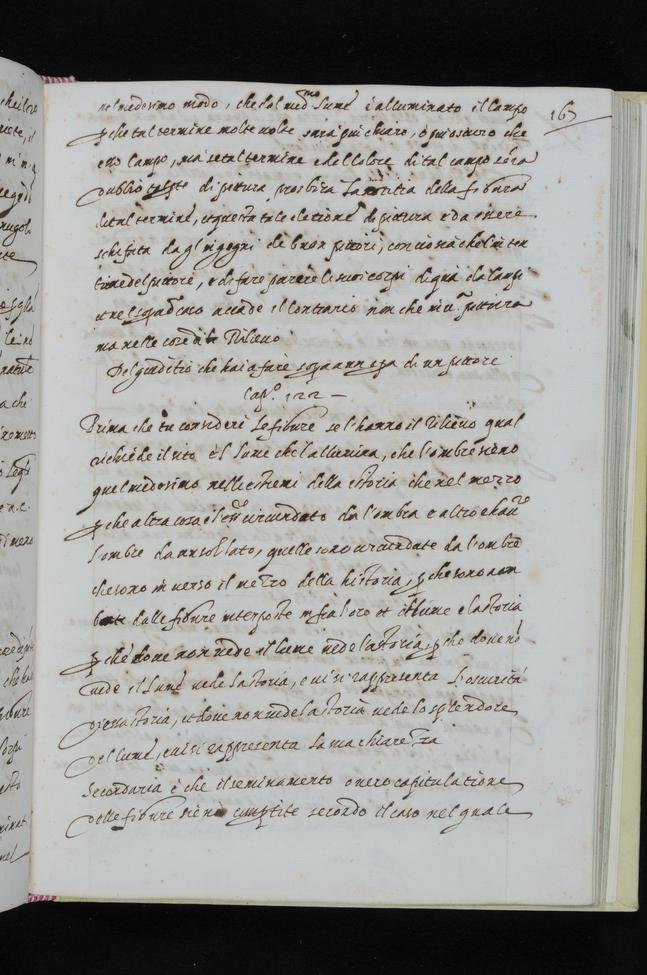 165
nel medesimo modo, che dal med.mo lume è alluminato il campo
p che tal termine molte volte sarà piu chiaro, o piu oscuro che
esso campo, ma se tal termine e del colore di tal campo senza
dubbio tal pte di pittura prohibira la notitia della figura
di tal termine, et questa tale eletione di pittura e da essere
schifata da gl'ingegni de buon pittori, conciosia che l'inten
tione del pittore, e di fare parere li suoi corpi di qua da campi
et nel sopradetto caso accade il contrario non che in la pittura
ma nelle cose di Rilievo
Del giuditio che hai a fare sopra una opa di un pittore
Cap.o 122
Prima che tu consideri le figure se l'hanno il Rilievo qual
richiede il sito è l lume che l'allumina, che l'ombre sieno
quel medesimo nelli estremi della istoria che nel mezzo
p che altra cosa è l'ess circundato da l'ombra e altro e hav.re
l'ombre da un sol lato, quelle sono circundate da l'ombre
che sono in verso il mezzo della historia, p che sono aom
brate dalle figure interposte in fra loro et il lume e la storia
p che dove non vede il lume vede la storia, p che dove nō
vede il lume vede la storia, e vi si rappresenta l'oscurità
d'essa storia, et dove non vede la storia vede lo splendore
del lume, e vi si rappresenta la sua chiarezza
Secondaria è che il seminamento overo capitulatione
delle figure sieno comptite secondo il caso nel quale